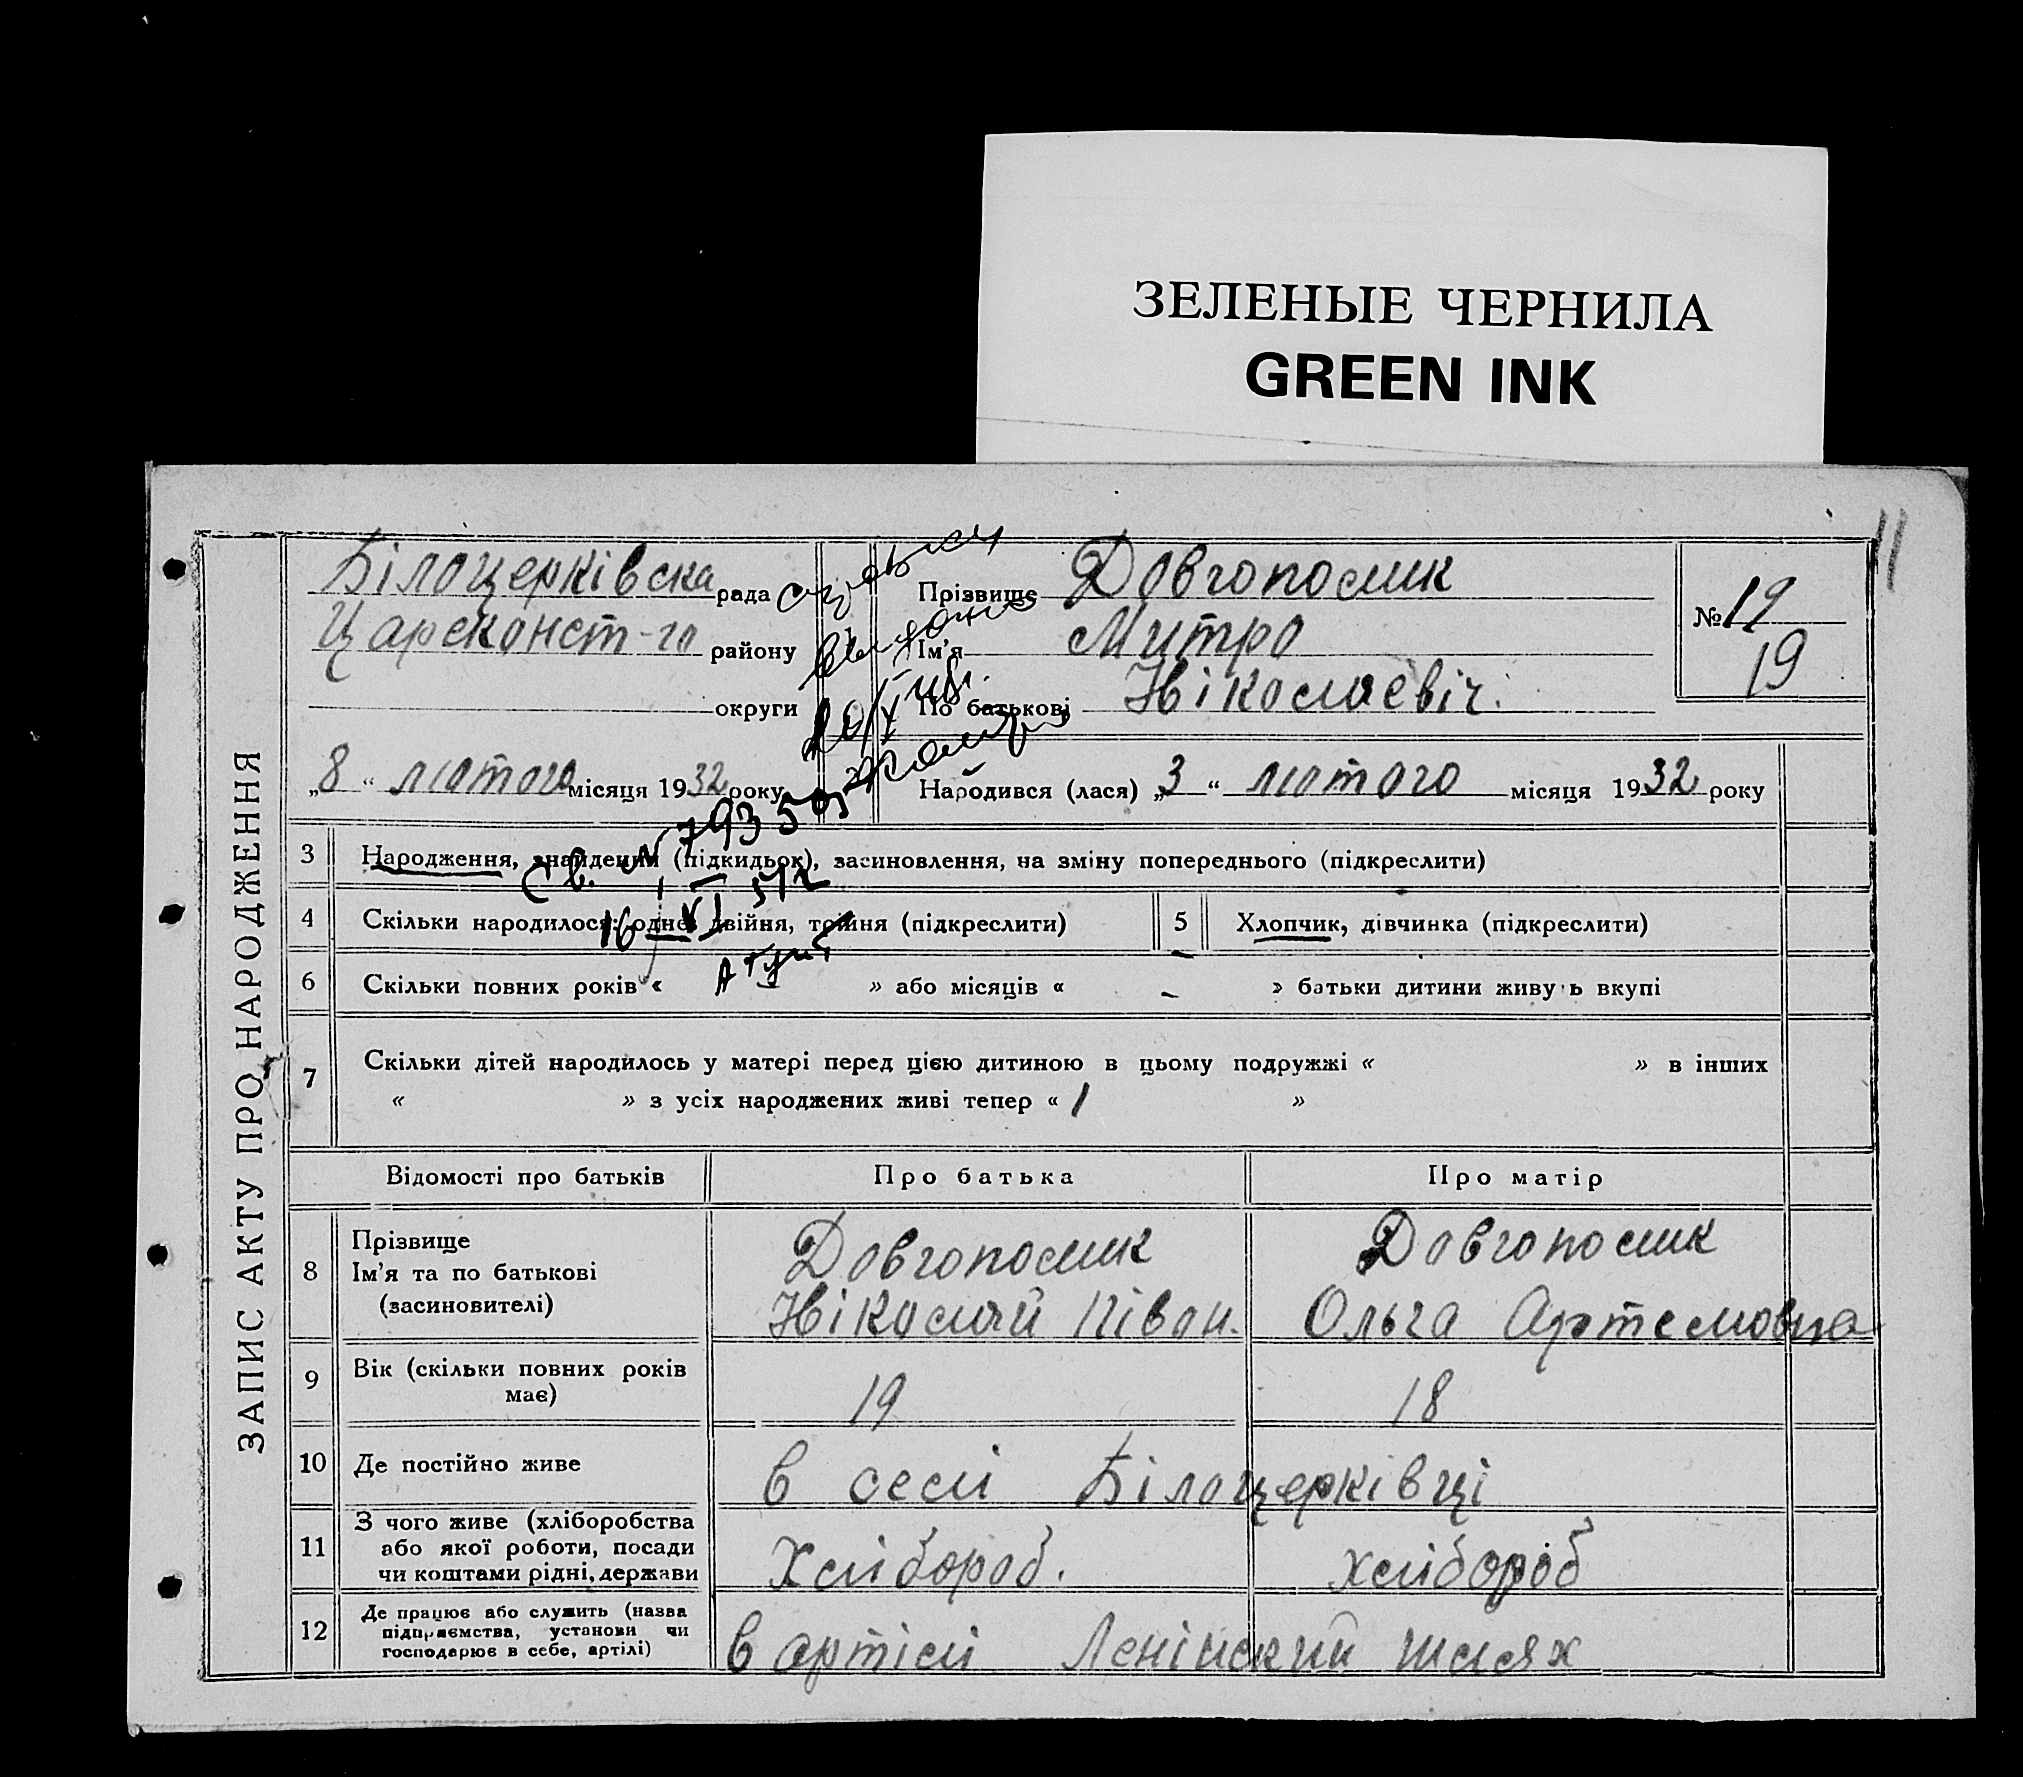 ЗЕЛЕНЫЕ ЧЕРНИЛА
GREEN INK
11
ЗАПИС АКТУ ПРО НАРОДЖЕННЯ
Білоцерківска рада
Царєконст-го району
округи
„8“ лютого місяця 1932 року
Прізвище Довгополик
Ім'я Митро
По батькові Ніколаєвіч.
№ 19
19
Народився (лася) „3“ лютого місяця 1932 року
справку
выдано
Св. № 793505
16 VI 51г
3 Народження, знайдення (підкидьок), засиновлення, на зміну попереднього (підкреслити)
4 Скільки народилося: одне, двійня, трійня (підкреслити)
5 Хлопчик, дівчинка (підкреслити)
6 Скільки повних років « » або місяців « – » батьки дитини живуть вкупі
7 Скільки дітей народилось у матері перед цією дитиною в цьому подружжі « » в інших
« » з усіх народжених живі тепер « 1 »
Відомості про батьків Про батька Про матір
8 Прізвище
Ім'я та по батькові
(засиновителі)
Довгополик
Ніколай Іван.
Довгополик
Ольга Артемовна
9 Вік (скільки повних років
має)
19 18
10 Де постійно живе в селі Білоцерківці
11 З чого живе (хліборобства
або якої роботи, посади
чи коштами рідні, держави
Хлібороб. хлібороб
12 Де працює або служить (назва
підприємства, установи чи
господарює в себе, артілі)
в артілі Ленінский шлях